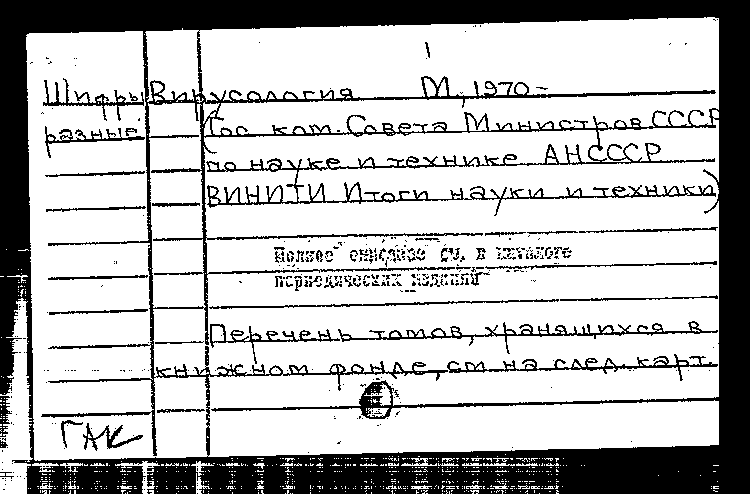 1
Шифры Вирусология М., 1970-
разные (Гос. ком. Совета Министров СССР
по науке и технике АНСССР
ВИНИТИ Итоги науки и техники)
Полное описание см. в каталоге
периодических изданий
Перечень томов, хранящихся в
книжном фонде, см на след. карт.
ГАК